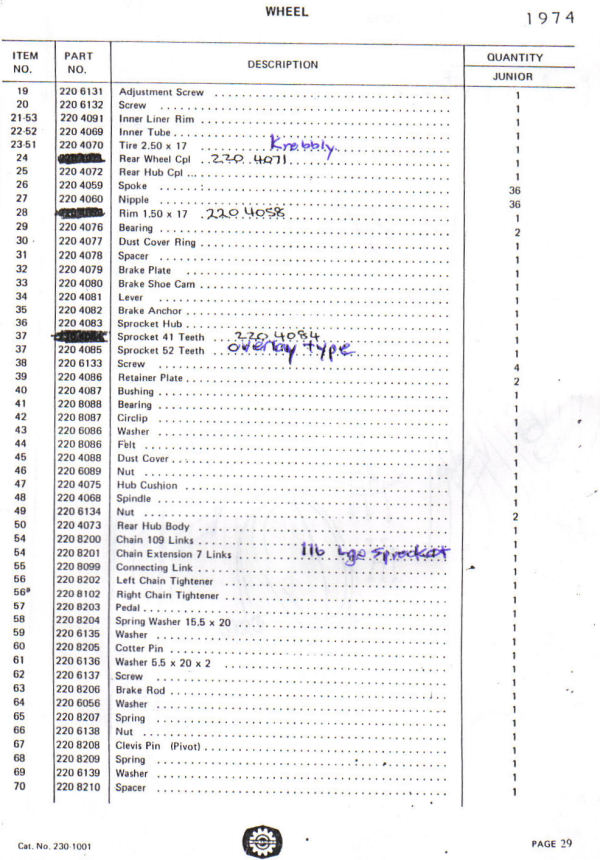 WHEEL
1974
ITEM NO. PART NO. DESCRIPTION QUANTITY
JUNIOR
19 220 6131 Adjustment Screw 1
20 220 6132 Screw 1
21-53 220 4091 Inner Liner Rim 1
22-52 220 4069 Inner Tube 1
23-51 220 4070 Tire 2.50 x 17 Knobbly 1
24 Rear Wheel Cpl 220 4071 1
25 220 4072 Rear Hub Cpl 1
26 220 4059 Spoke 36
27 220 4060 Nipple 36
28 Rim 1.50 x 17 220 4058 1
29 220 4076 Bearing 2
30 220 4077 Dust Cover Ring 1
31 220 4078 Spacer 1
32 220 4079 Brake Plate 1
33 220 4080 Brake Shoe Cam 1
34 220 4081 Lever 1
35 220 4082 Brake Anchor 1
36 220 4083 Sprocket Hub 1
37 Sprocket 41 Teeth 220 4084 1
37 220 4085 Sprocket 52 Teeth overlay type 1
38 220 6133 Screw 4
39 220 4086 Retainer Plate 2
40 220 4087 Bushing 1
41 220 8088 Bearing 1
42 220 8087 Circlip 1
43 220 6086 Washer 1
44 220 8086 Felt 1
45 220 4088 Dust Cover 1
46 220 6089 Nut 1
47 220 4075 Hub Cushion 1
48 220 4068 Spindle 1
49 220 6134 Nut 2
50 220 4073 Rear Hub Body 1
54 220 8200 Chain 109 Links 1
54 220 8201 Chain Extension 7 Links 116 Lge Sprocket 1
55 220 8099 Connecting Link 1
56 220 8202 Left Chain Tightener 1
56ª 220 8102 Right Chain Tightener 1
57 220 8203 Pedal 1
58 220 8204 Spring Washer 15.5 x 20 1
59 220 6135 Washer 1
60 220 8205 Cotter Pin 1
61 220 6136 Washer 5.5 x 20 x 2 1
62 220 6137 Screw 1
63 220 8206 Brake Rod 1
64 220 6056 Washer 1
65 220 8207 Spring 1
66 220 6138 Nut 1
67 220 8208 Clevis Pin (Pivot) 1
68 220 8209 Spring 1
69 220 6139 Washer 1
70 220 8210 Spacer 1
Cat. No. 230-1001 PAGE 29